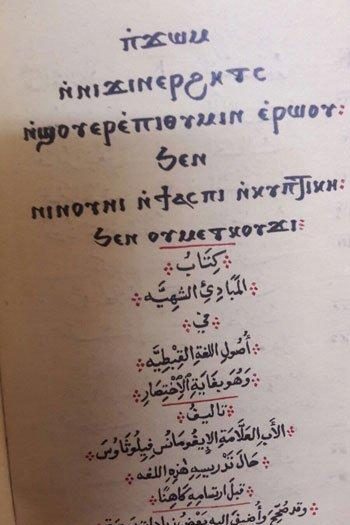 ⲡ̀ϫⲱⲙ
ⲛ̀ⲛⲓϫⲓⲛⲉⲣϩⲏⲧⲥ
ⲛ̀ϣⲟⲩⲉⲣⲉ̀ⲡⲓⲑⲩⲙⲓⲛ ⲉ̀ⲣⲱⲟⲩ:
ϧⲉⲛ
ⲛⲓⲛⲟⲩⲛⲓ ⲛ̀ϯⲁⲥⲡⲓ ⲛ̀ⲕⲩⲡⲧⲓⲕⲏ:
ϧⲉⲛ ⲟⲩⲙⲉⲧⲕⲟⲩϫⲓ:
كِتَابُ
المَبَادِئِ الشَهِيَّه
فِي
أُصُولِ اللغَةِ القِبْطِيَّه
وَهُوَ بِغَايَةِ الاِخْتِصَار
تَالِيفُ
الأَبِ العَلَّامَةِ الإِيغُومَانُس فِيلُوثَاوُس
حَالَ تَدْرِيسِهِ هٰذِهِ اللغه
قَبْلَ ارتِسَامِهِ كَاهِنًا
وقد صُحِّحَ وأُضيفَ اليهِ بَعْضُ